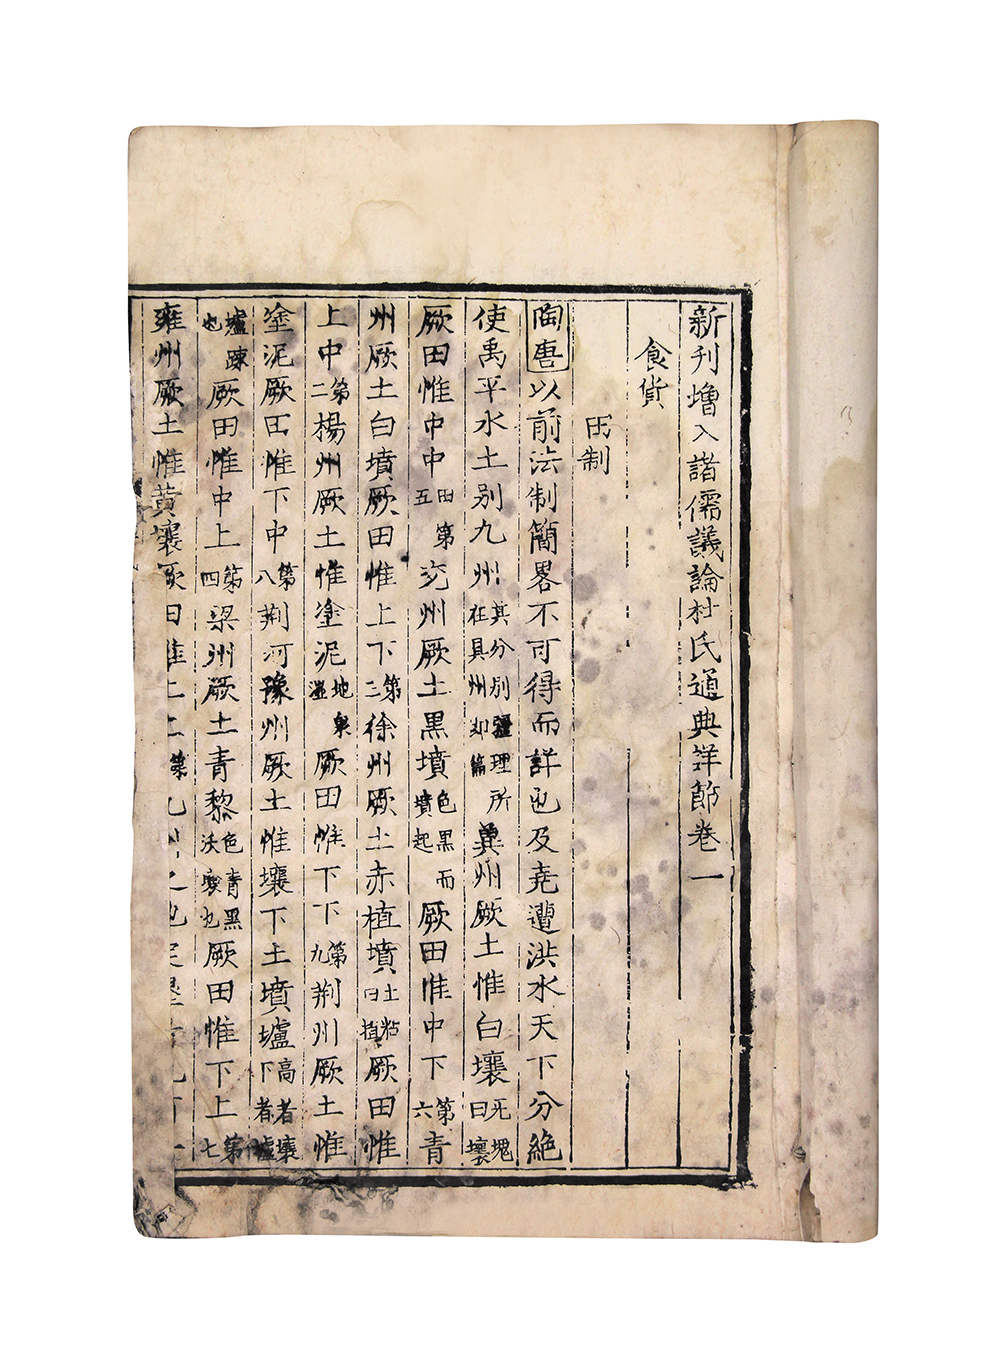 新刋增入諸儒議論杜氏通典詳節卷一
食貨
田制
陶唐以前法制簡畧不可得而詳也及堯遭洪水天下分絶
使禹平水土别九州其分别疆理所在具州郡篇兾州厥土惟白壤无塊曰壤
厥田惟中中田第五兖州厥土黒墳色黒而墳起厥田惟中下第六青
州厥土白墳厥田惟上下第三徐州厥土赤植墳土粘曰植厥田惟
上中第二楊州厥土惟塗泥地泉濕厥田惟下下第九荆州厥土惟
塗泥厥田惟下中第八荆河豫州厥土惟壤下土墳壚高者壤下者壚
壚踈也厥田惟中上第四梁州厥土青黎色青黒沃壤也厥田惟下上第七
雍州厥土惟黄壤厥田惟上上第九州之地定墾